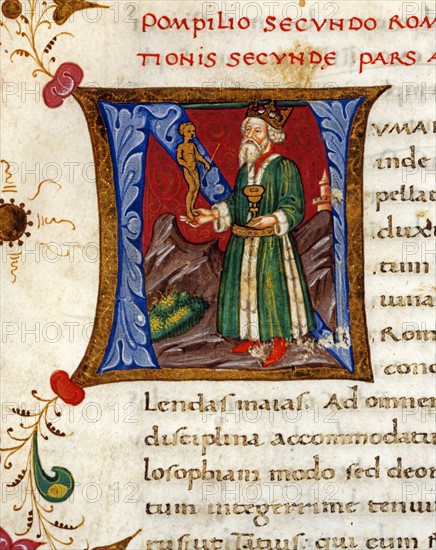 POMPILIO SECVNDO ROM
TIONIS SECVNDE PARS A
N
VMA
inde
pellat
duxi
tum
una
Rom
conc
Lendas maias. Ad omner
disciplina accommodatu
losophiam modo sed deor
tum integerrime tenui
rusiut Tatius: qui eum f